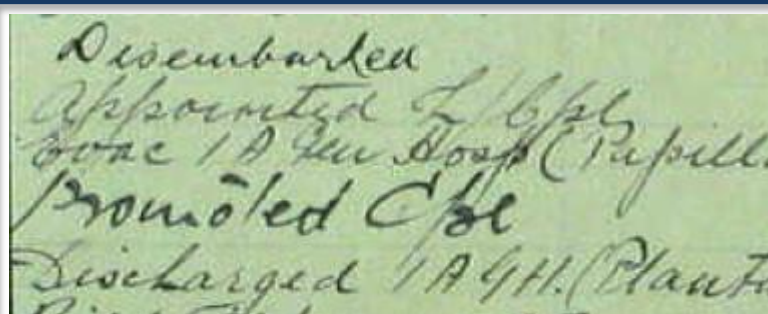 Disembarked
Appointed L/Cpl
Evac 1 A Gen Hosp (Papill
Promoted Cpl
Discharged 1 AGH. (Planta